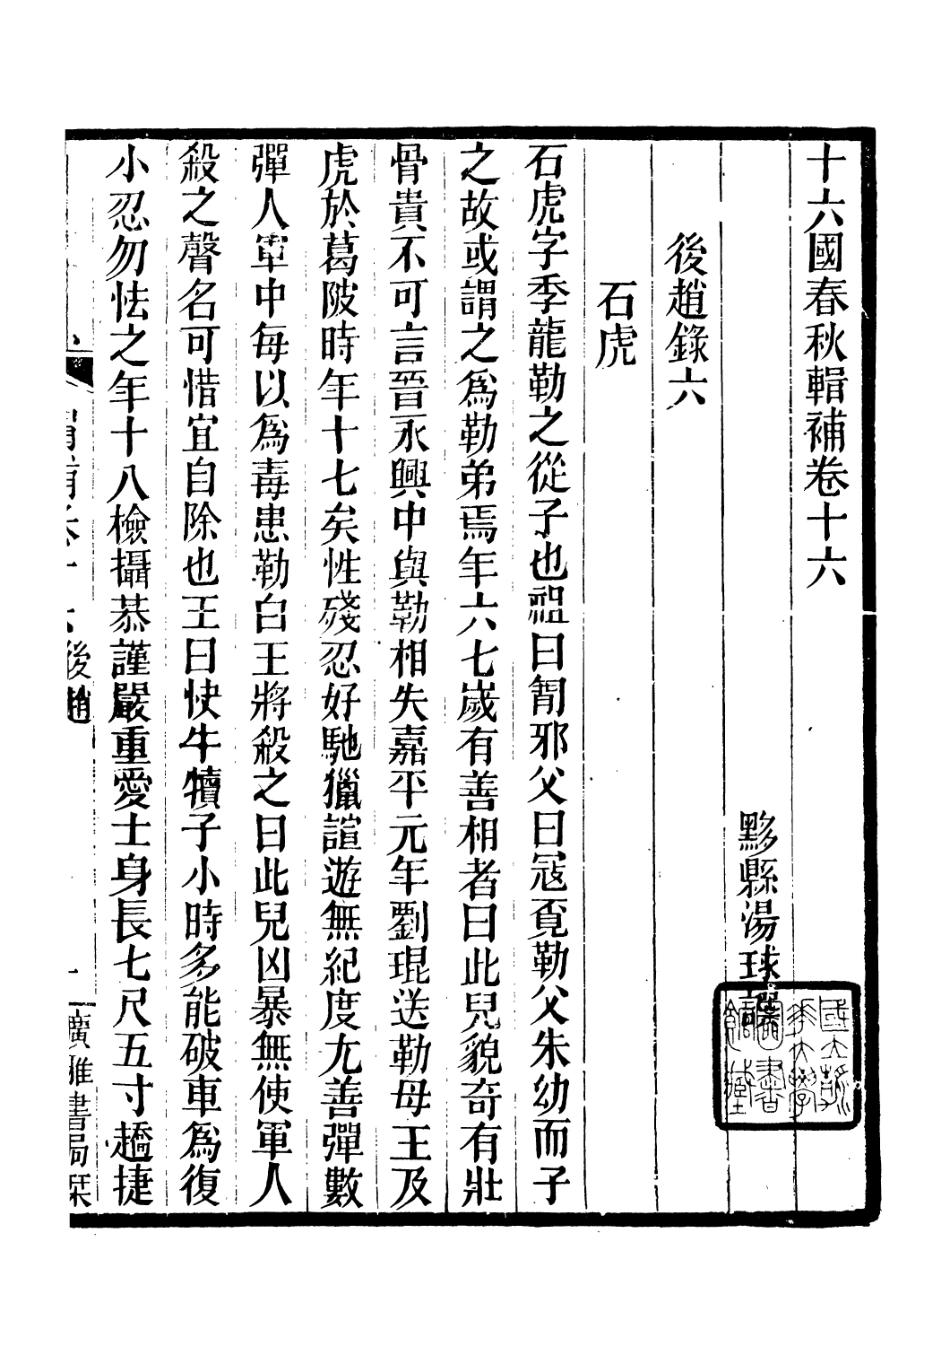 十六國春秋輯補卷十六
黟縣湯球
後趙錄六
石虎
石虎字季龍勒之從子也祖曰㔨邪父曰寇覔勒父朱幼而子
之故或謂之爲勒弟焉年六七歲有善相者曰此兒貌奇有壯
骨貴不可言晉永興中與勒相失嘉平元年劉琨送勒母王及
虎於葛陂時年十七矣性殘忍好馳獵諠遊無紀度尤善彈數
彈人軍中每以爲毒患勒白王將殺之曰此兒凶暴無使軍人
殺之聲名可惜宜自除也王曰快牛犢子小時多能破車爲復
小忍勿怯之年十八檢攝恭謹嚴重愛士身長七尺五寸趫捷
後趙
廣雅書局栞